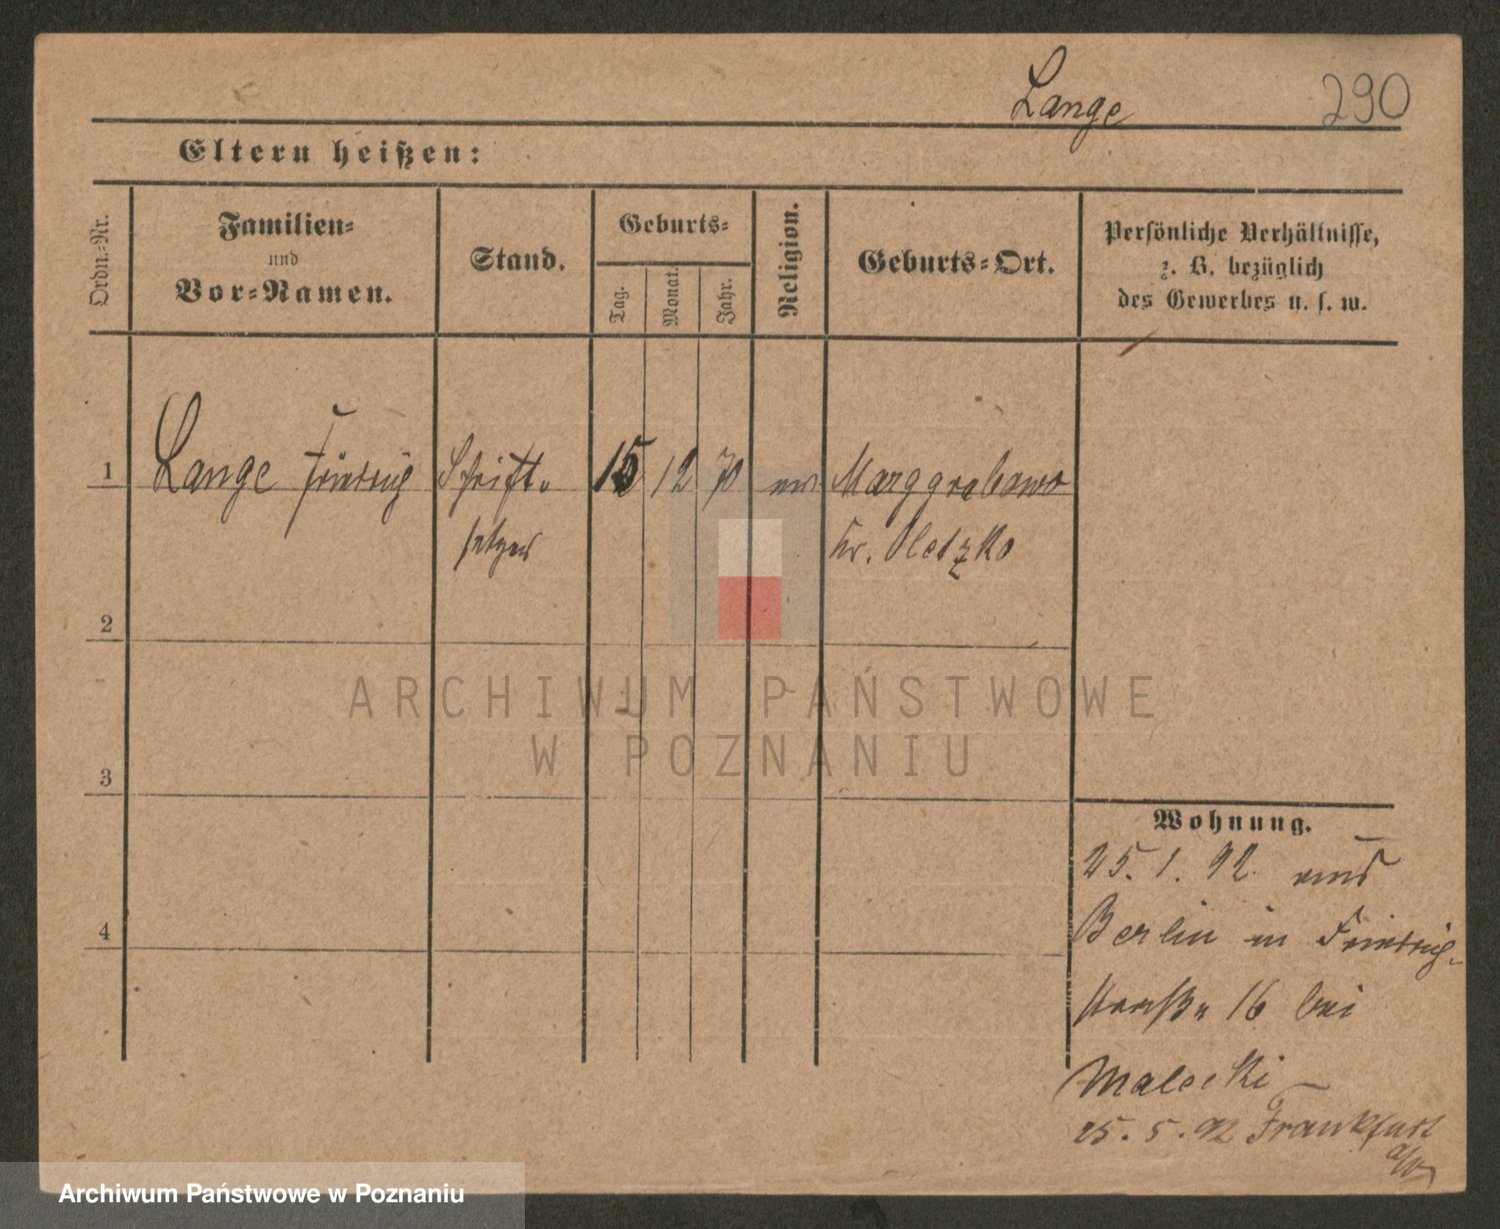 Lange 290
Eltern heißen:
Ordn.-Nr. Familien- und Vor-Namen. Stand. Geburts- Tag. Monat. Jahr. Religion. Geburts-Ort. Persönliche Verhältnisse, z. B. bezüglich des Gewerbes u. s. w.
1 Lange Friedrich Schrift- 15 12 70 ev Marggrabowo
setzer Kr. Oletzko
2
ARCHIWUM PAŃSTWOWE
W POZNANIU
3
Wohnung.
25. 1. 92. aus
Berlin in Friedrich-
straße 16 bei
4
Malecki
25. 5. 92 Frankfurt
a/O
Archiwum Państwowe w Poznaniu